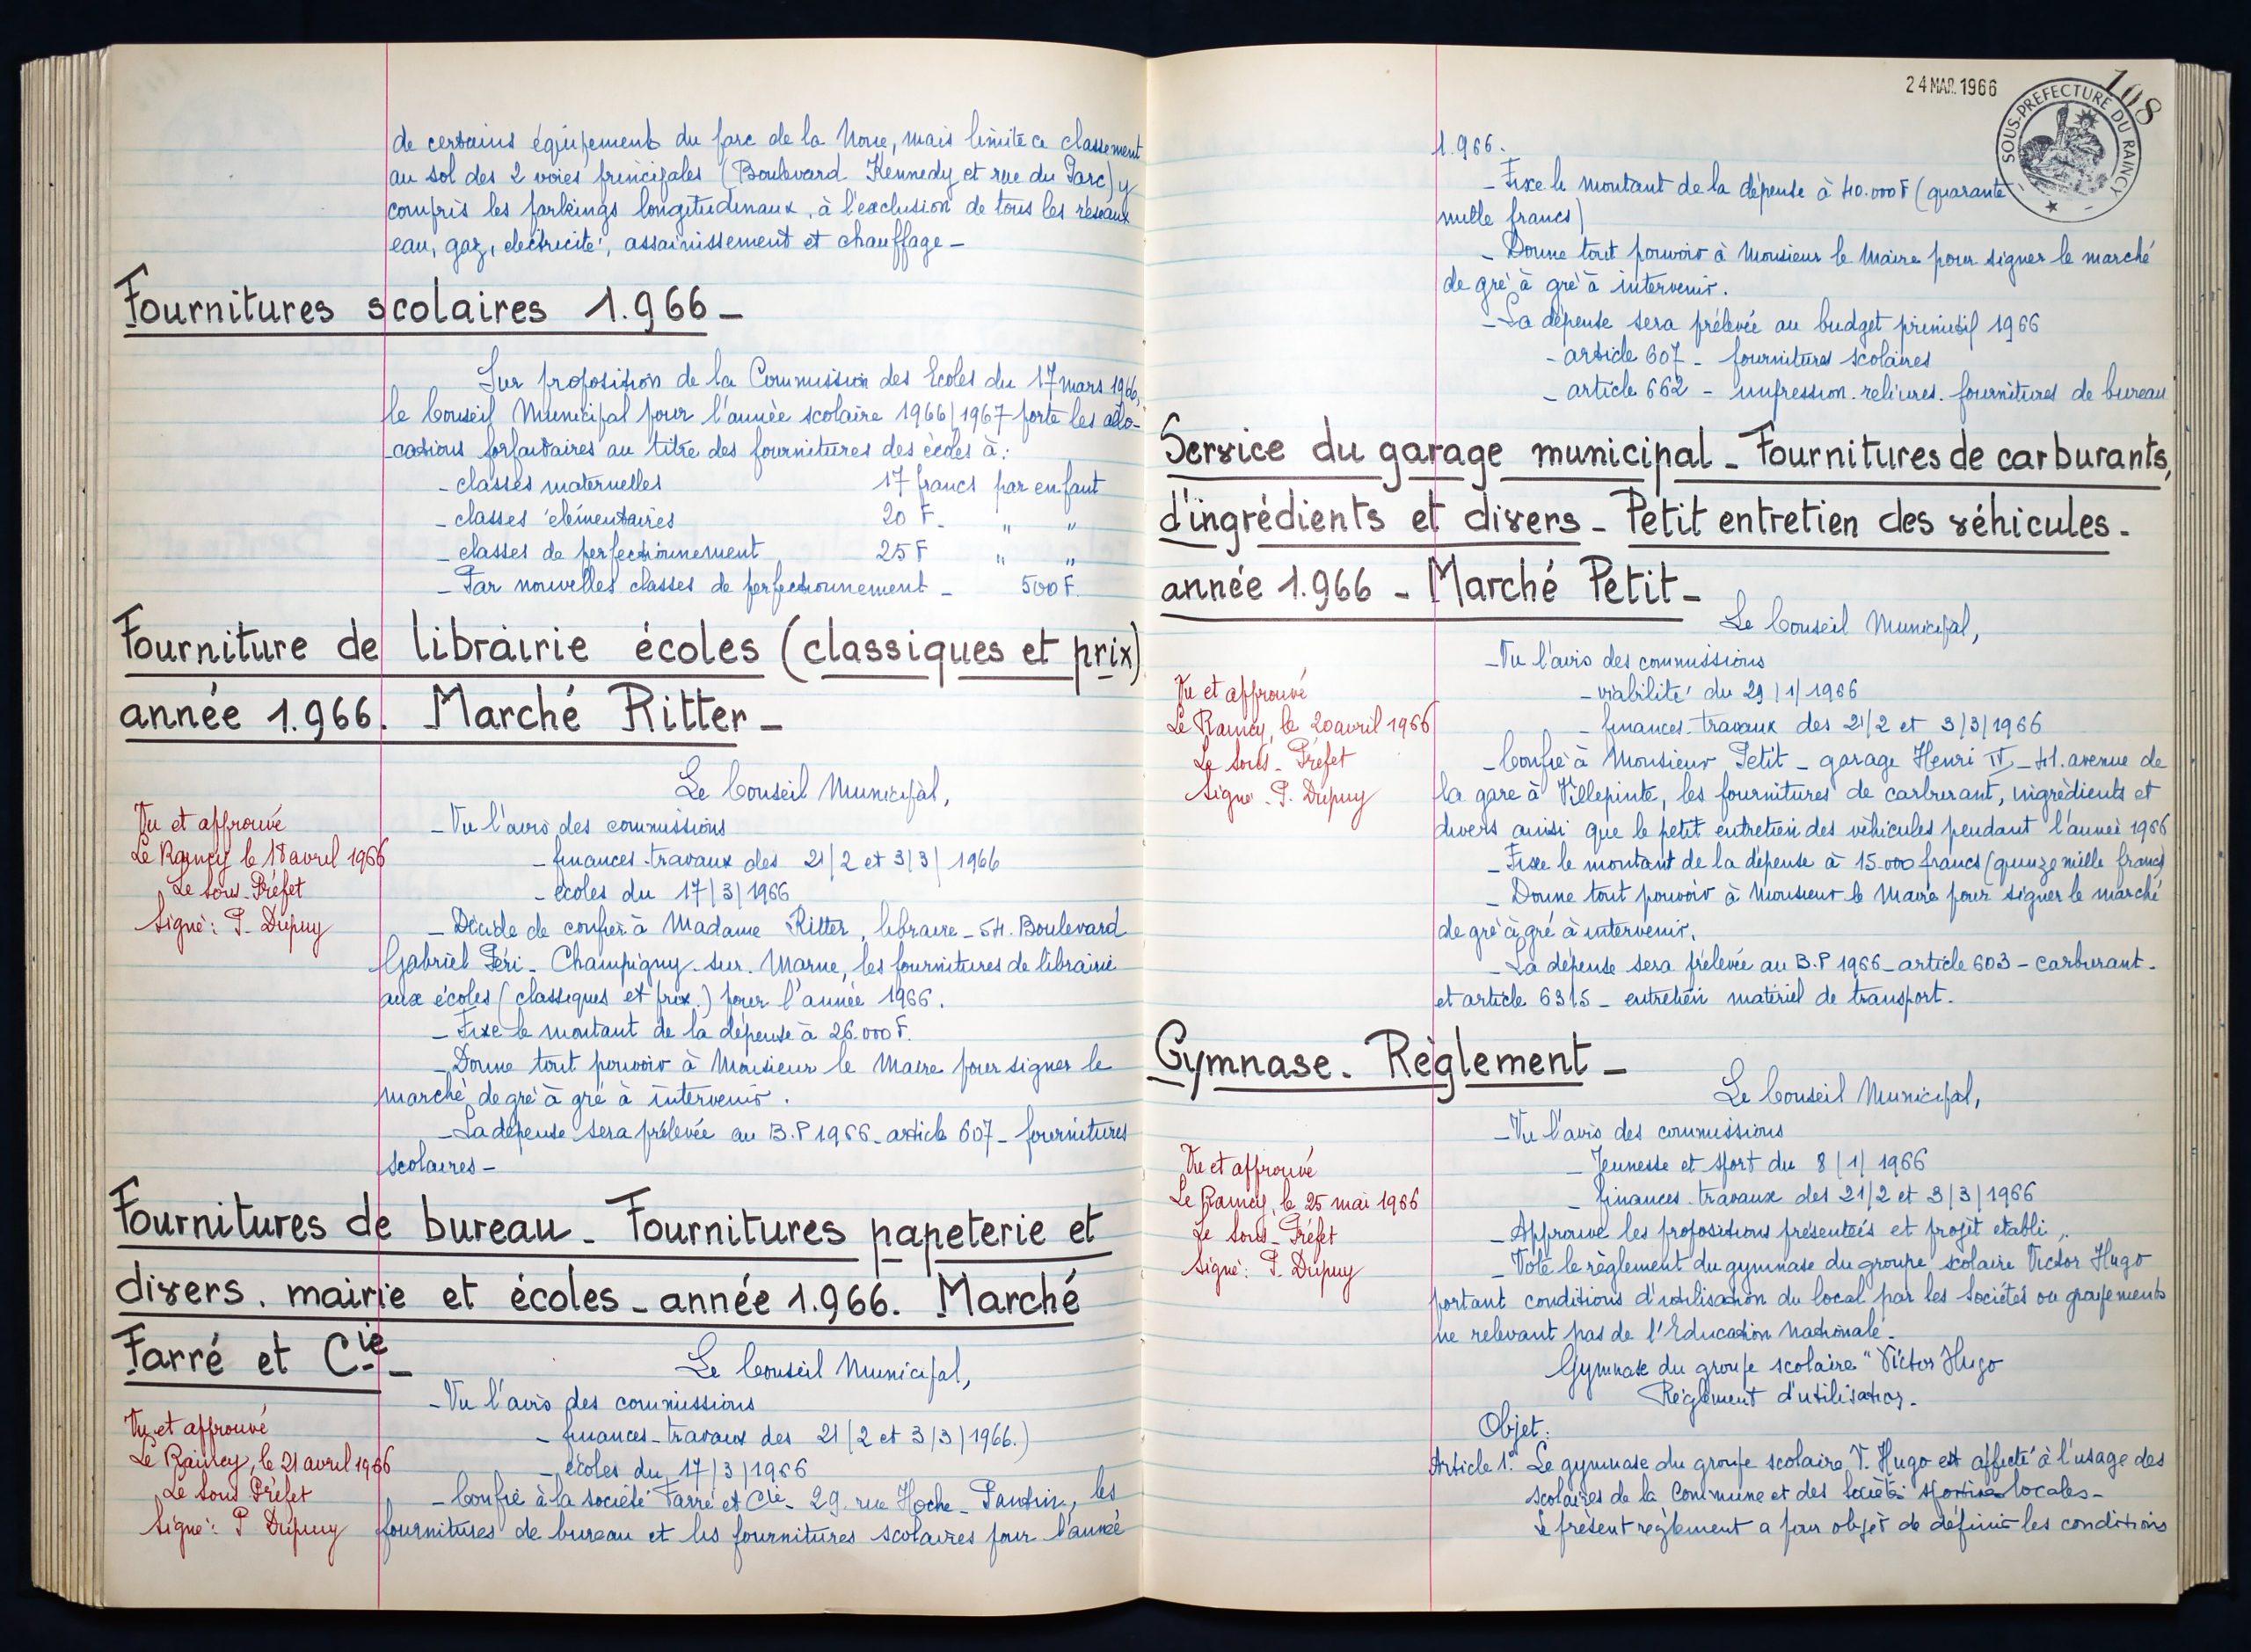 de certains équipements du parc de la Noue, mais limite ce classement
au sol des 2 voies principales (Boulevard Kennedy et rue du Parc) y
compris les parkings longitudinaux, à l'exclusion de tous les réseaux
eau, gaz, électricité, assainissement et chauffage -
Fournitures scolaires 1.966 -
Sur proposition de la Commission des Ecoles du 17 mars 1966,
le Conseil Municipal pour l'année scolaire 1966/1967 porte les allo-
cations forfaitaires au titre des fournitures des écoles à:
- classes maternelles 17 francs par enfant
- classes élémentaires 20 F. " "
- classes de perfectionnement 25 F " "
- Par nouvelles classes de perfectionnement - 500 F.
Fourniture de librairie écoles (classiques et prix)
année 1.966. Marché Ritter -
Le Conseil Municipal,
Vu et approuvé
Le Raincy le 18 avril 1966
Le Sous-Préfet
Signé: P. Dupuy
- Vu l'avis des commissions
- finances-travaux des 21/2 et 3/3/1966
- écoles du 17/3/1966
- Décide de confier à Madame Ritter, libraire - 54. Boulevard
Gabriel Péri - Champigny-sur-Marne, les fournitures de librairie
aux écoles (classiques et prix.) pour l'année 1966.
- Fixe le montant de la dépense à 26.000 F.
- Donne tout pouvoir à Monsieur le Maire pour signer le
marché de gré à gré à intervenir.
- La dépense sera prélevée au B.P 1966 - article 607 - fournitures
scolaires -
Fournitures de bureau - Fournitures papeterie et
divers. mairie et écoles - année 1.966. Marché
Farré et Cie -
Le Conseil Municipal,
Vu et approuvé
Le Raincy, le 21 avril 1966
Le Sous Préfet
Signé: P Dupuy
- Vu l'avis des commissions
- finances-travaux des 21/2 et 3/3/1966.)
- écoles du 17/3/1966
- Confie à la société Farré et Cie - 29. rue Hoche - Pantin, les
fournitures de bureau et les fournitures scolaires pour l'année
24 MAR. 1966
108
SOUS-PREFECTURE DU RAINCY
1.966.
- Fixe le montant de la dépense à 40.000 F (quarante
mille francs)
- Donne tout pouvoir à Monsieur le Maire pour signer le marché
de gré à gré à intervenir.
- La dépense sera prélevée au budget primitif 1966
- article 607 - fournitures scolaires
- article 662 - impression. reliures. fournitures de bureau
Service du garage municipal - Fournitures de carburants,
d'ingrédients et divers - Petit entretien des véhicules -
année 1.966 - Marché Petit -
Le Conseil Municipal,
Vu et approuvé
Le Raincy, le 20 avril 1966
Le Sous-Préfet
Signé - P. Dupuy
- Vu l'avis des commissions
- viabilité du 29/1/1966
- finances-travaux des 21/2 et 3/3/1966
- Confie à Monsieur Petit - garage Henri IV - 41. avenue de
la gare à Villepinte, les fournitures de carburant, ingrédients et
divers ainsi que le petit entretien des véhicules pendant l'année 1966
- Fixe le montant de la dépense à 15.000 francs (quinze mille francs)
- Donne tout pouvoir à Monsieur le Maire pour signer le marché
de gré à gré à intervenir.
- La dépense sera prélevée au B.P 1966 - article 603 - carburant -
et article 6315 - entretien matériel de transport.
Gymnase. Règlement -
Le Conseil Municipal,
Vu et approuvé
Le Raincy, le 25 mai 1966
Le Sous-Préfet
Signé: P. Dupuy
- Vu l'avis des commissions
- Jeunesse et sport du 8/1/1966
- finances-travaux des 21/2 et 3/3/1966
- Approuve les propositions présentées et projet établi,
- Vote le règlement du gymnase du groupe scolaire Victor Hugo
portant conditions d'utilisation du local par les Sociétés ou groupements
ne relevant pas de l'Education Nationale.
Gymnase du groupe scolaire "Victor Hugo
Règlement d'utilisation.
Objet:
Article 1er Le gymnase du groupe scolaire V. Hugo est affecté à l'usage des
scolaires de la Commune et des Sociétés sportives locales -
Le présent règlement a pour objet de définir les conditions